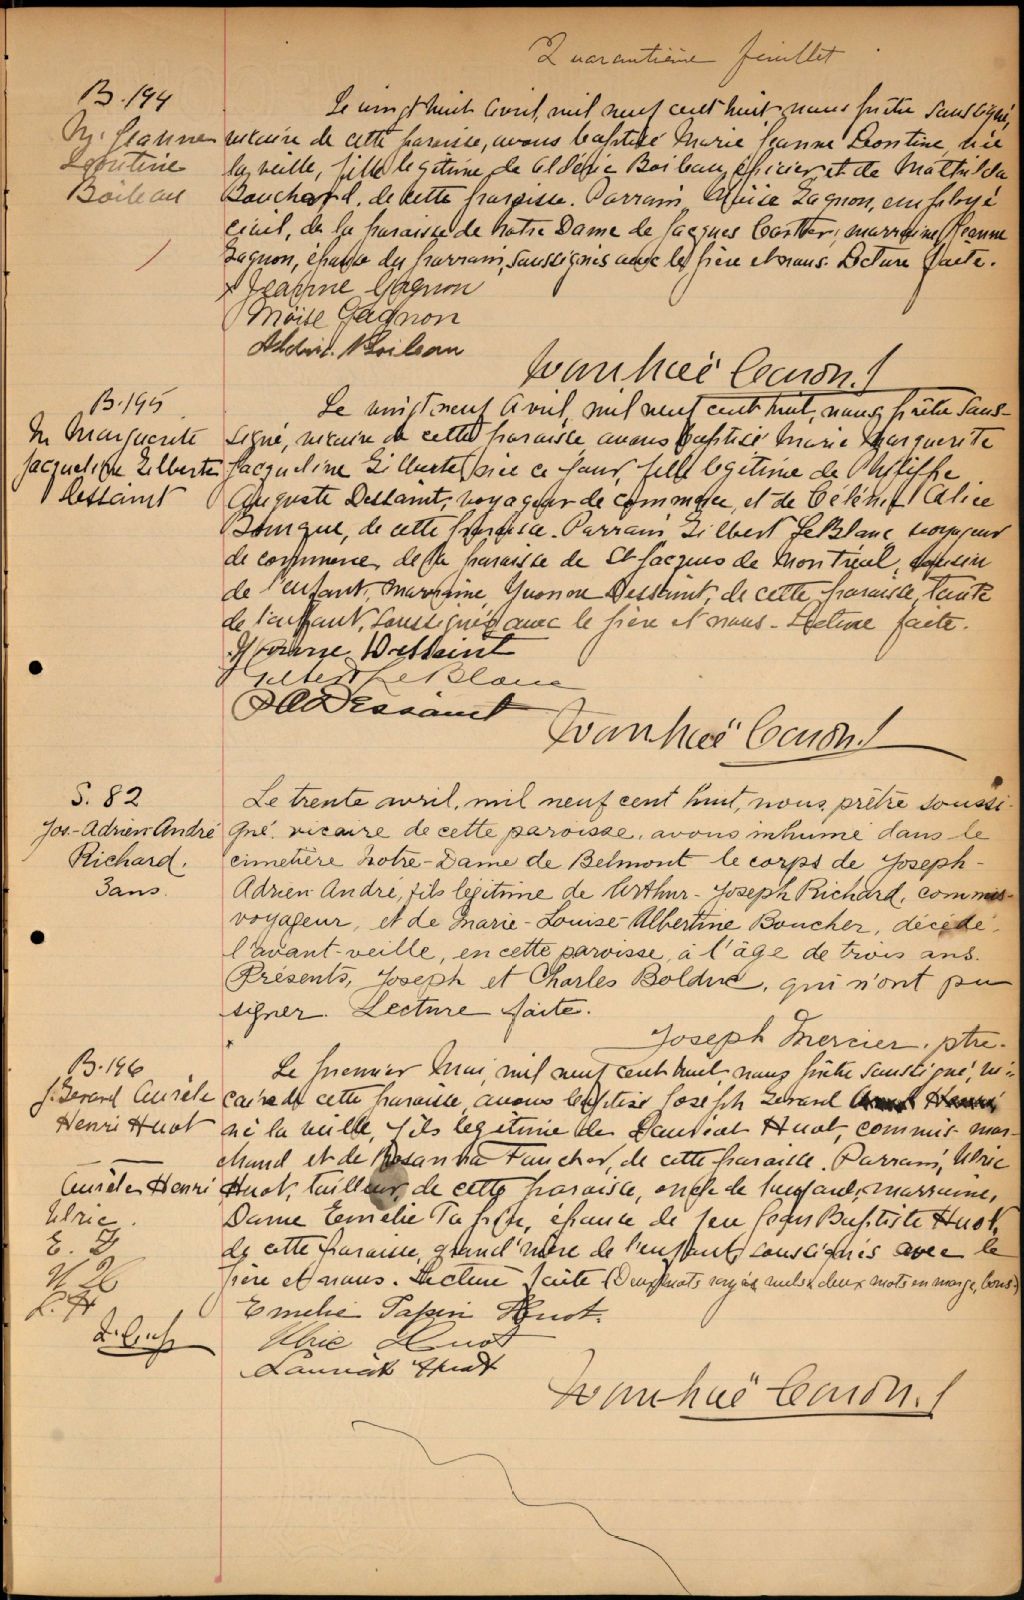 Quarantième feuillet
B. 194
M. Jeanne
Leontine
Boileau
Le vingt huit avril, mil neuf cent huit, nous prêtre soussigné,
vicaire de cette paroisse, avons baptisé Marie Jeanne Leontine, née
la veille, fille légitime de Aldéric Boileau, épicier et de Mathilda
Bouchard, de cette paroisse. Parrain, Moïse Gagnon, employé
civil, de la paroisse de Notre Dame de Jacques Cartier; marraine, Jeanne
Gagnon, épouse du parrain, soussignés avec le père et nous. Lecture faite.
Jeanne Gagnon
Moïse Gagnon
Aldéric Boileau
Ivanhoë Caron. p
B. 195
M. Marguerite
Jacqueline Gilberte
Dessaint
Le vingt neuf avril, mil neuf cent huit, nous, prêtre sous-
signé, vicaire de cette paroisse, avons baptisé Marie Marguerite
Jacqueline Gilberte, née ce jour, fille légitime de Philippe
Auguste Dessaint, voyageur de commerce, et de Célénie Alice
Bourque, de cette paroisse. Parrain, Gilbert LeBlanc, voyageur
de commerce, de la paroisse de St Jacques de Montréal, cousin
de l'enfant, marraine, Yvonne Dessaint, de cette paroisse, tante
de l'enfant, soussignés avec le père et nous. Lecture faite.
Yvonne Dessaint
Gilbert LeBlanc
P A Dessaint
Ivanhoë Caron. p
S. 82
Jos.-Adrien-André
Richard.
3 ans.
Le trente avril, mil neuf cent huit, nous, prêtre soussi-
gné, vicaire de cette paroisse, avons inhumé dans le
cimetière Notre-Dame de Belmont le corps de Joseph-
Adrien-André, fils légitime de Arthur-Joseph Richard, commis-
voyageur, et de Marie-Louise-Albertine Boucher, décédé
l'avant-veille, en cette paroisse, à l'âge de trois ans.
Présents, Joseph et Charles Bolduc, qui n'ont pu
signer. Lecture faite.
Joseph Mercier, ptre.
B. 196
J. Gerard Aurèle
Henri Huot
Le premier Mai, mil neuf cent huit, nous prêtre soussigné, vi-
caire de cette paroisse, avons baptisé Joseph Gerard
né la veille, fils légitime de Lauréat Huot, commis mar-
chand et de Rosanna Faucher, de cette paroisse. Parrain, Ulric
Aurèle Henri
Huot, tailleur, de cette paroisse, oncle de l'enfant, marraine,
Ulric.
Dame Emelie Papin, épouse de feu Jean Baptiste Huot,
E. P
de cette paroisse, grand'mère de l'enfant, soussignés avec le
U H
père et nous. Lecture faite (Deux mots rayés nuls & deux mots en marge, bons)
L. H
Emelie Papin Huot.
Ulric Huot
Lauréat Huot
Ivanhoë Caron. p